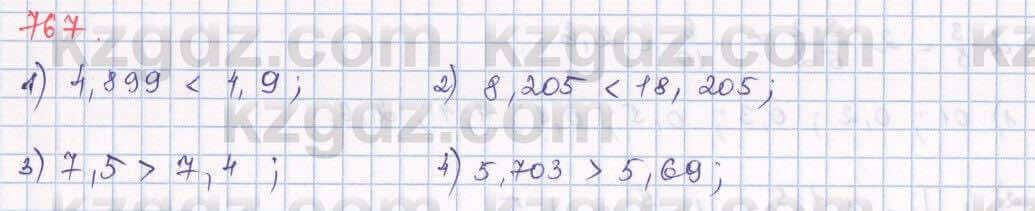 767.
1) 4,899 < 4,9; 2) 8,205 < 18,205;
3) 7,5 > 7,4 ; 4) 5,703 > 5,69;
kzgdz.com kzgdz.com kz
kzgdz.com